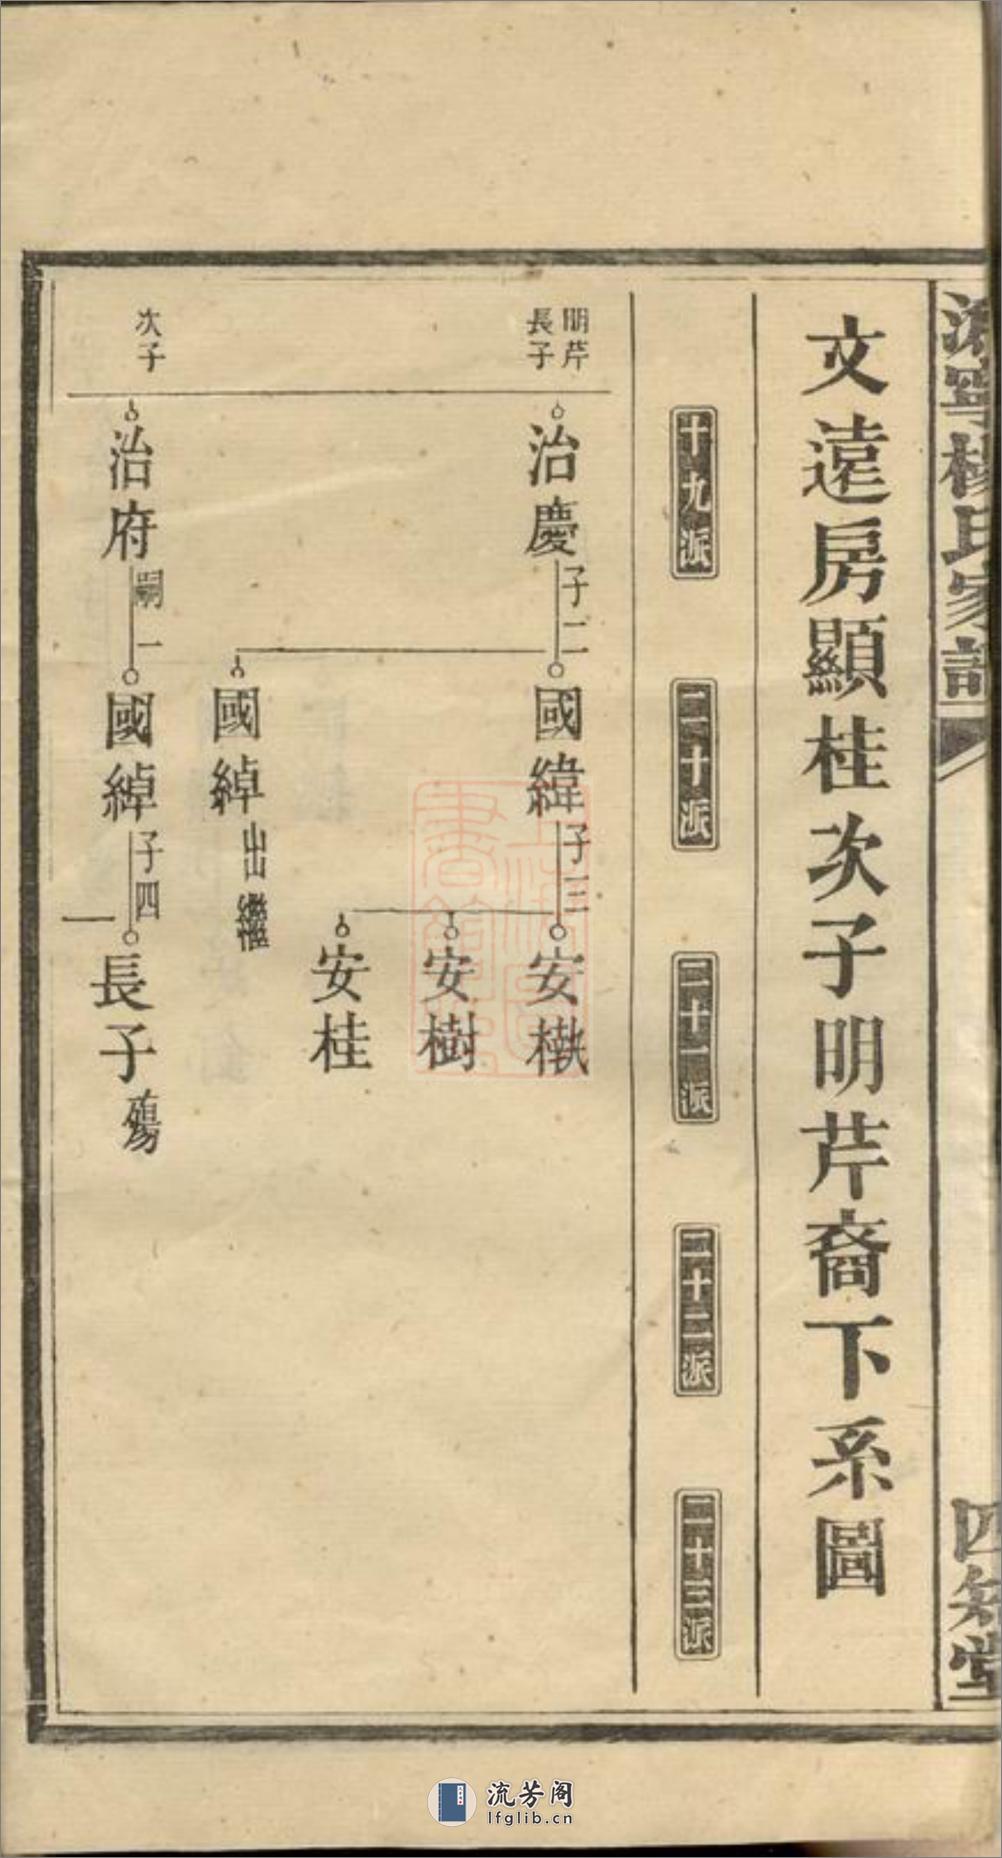 寧楊氏家譜
四知堂
文遠房顯桂次子明芹裔下系圖
十九派
二十派
二十一派
二十二派
二十三派
明芹
長子
治慶
子二
國緯
子三
安樹
安桂
國綽
出繼
次子
治府
嗣一
國綽
子四
長子
殤
流芳阁
lfglib.cn